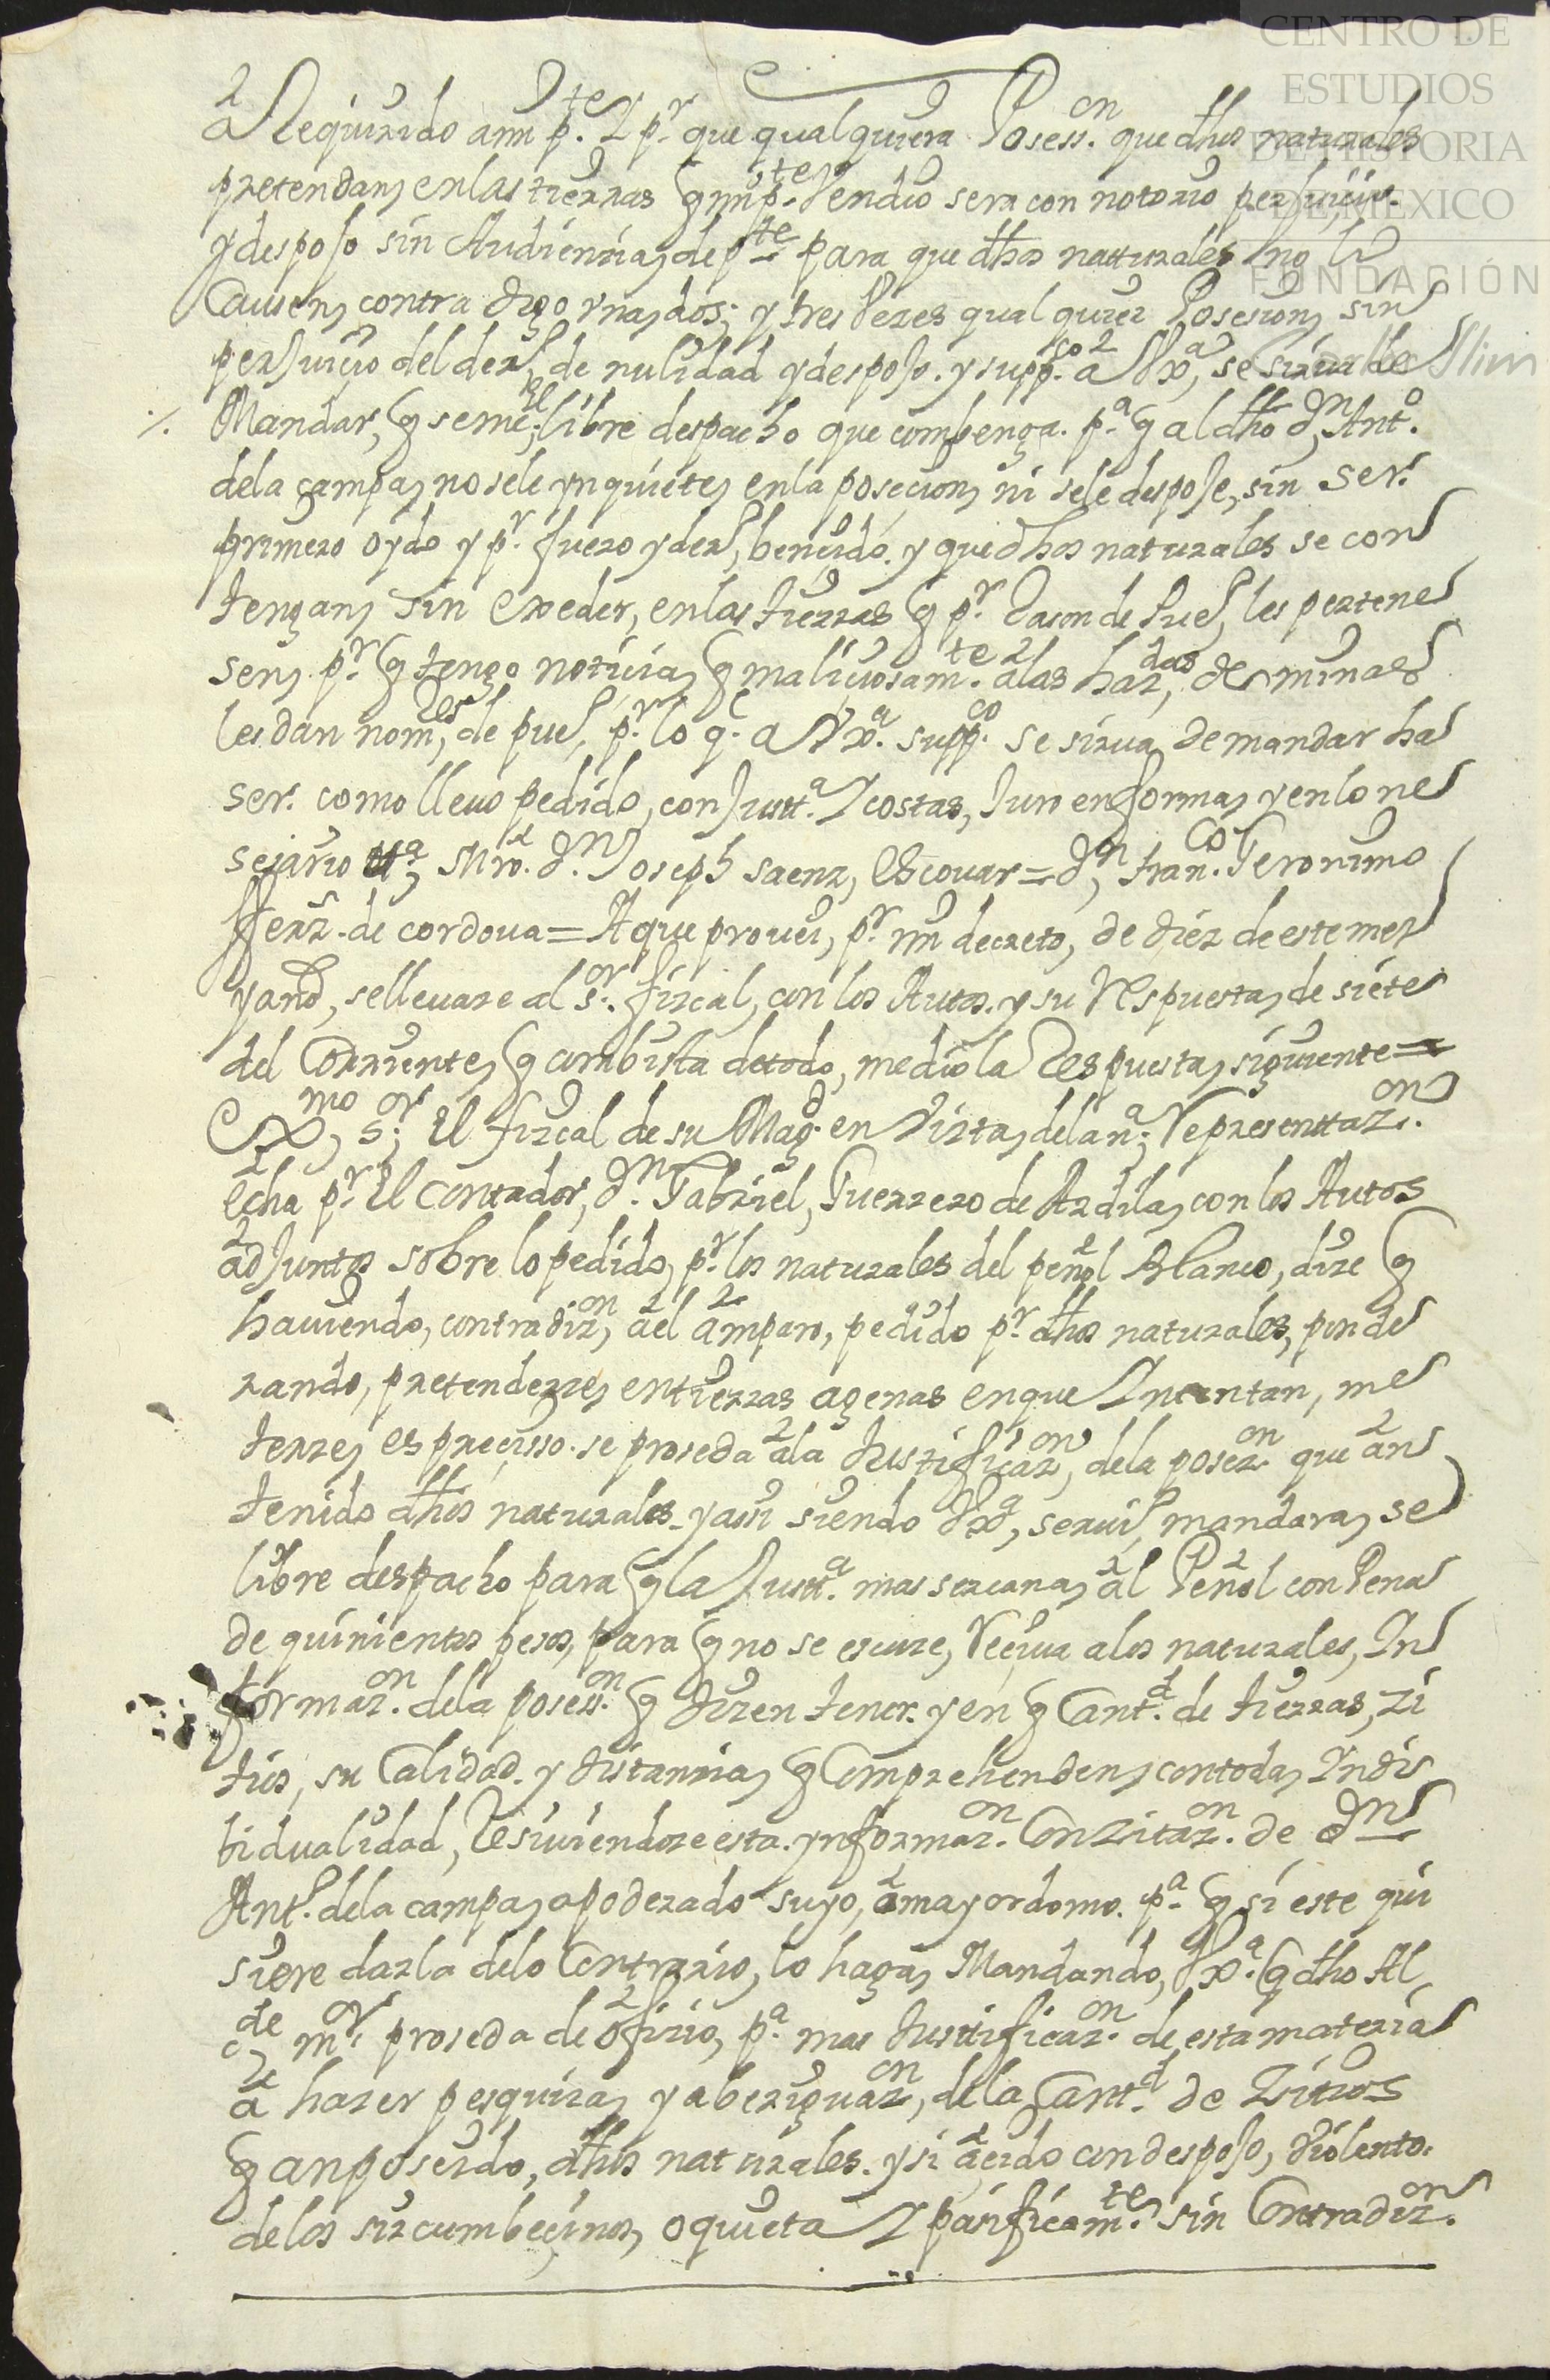 CENTRO DE
ESTUDIOS
DE HISTORIA
DE MEXICO
FUNDACIÓN
Carlos Slim
Requirido a mi p.te y p.r que qualquiera Posess.on que dhos naturales
pretendan en las tierras q mi p.te Vendio sera con notorio perjuicio.
y despojo sin Audiencia, de p.te para que dhos naturales no lo
Causen, contradigo vna, dos, y tres Vezes qualquier Posesion, sin
perjuicio del der.o de nulidad y despojo. y supp.co a V Ex.a, se sirua de
Mandar, q se me libre despacho que combenga. p.a q al dho D.n Ant.o
de la campa, no se le ynquiete, en la posecion, ni se le despoje, sin ser.
primero oydo y p.r fuero y der.o bencido. y que dhos naturales se con
tengan, sin Exeder, en las tierras q p.r Rason de Pue.o les pertene
sen. p.r q tengo noticia, q maliciosam.te a las haz.das de minas
les dan nom.es de pue.o p.r lo q. a V Ex.a supp.co se sirua, de mandar ha
ser. como lleuo pedido, con Justt.a y costas, Juro en forma, y en lo ne
sesario Mro. D.n Joseph Saenz, Escouar = D.n Fran.co Geronimo
Ferz. de cordoua = A que prouei, p.r mi decreto, de diez de este mes
y año, se lleuare al s.or fiscal, con los Autos. y su Respuesta, de siete
del Corriente, q con bista de todo, me dio la Respuesta, siguiente =
Ex.mo s.or El fiscal de su Mag.d en Vista, de la n.a Representtaz.on
echa p.r El Contador, D.n Gabriel, Guerrero de Ardila, con los Autos
adjuntos sobre lo pedido, p.r los naturales del peñol Blanco, dize q
hauiendo, contradiz.on a el amparo, pedido p.r dhos naturales, ponde
rando, pretenderre, en tierras agenas en que Yntentan, me
terze, es precisso. se proseda a la Justificaz.on de la posez.on que an
tenido dhos naturales y assi siendo V Ex.a, seruido, mandara, se
libre despacho para q la Justt.a mas sercana, al Peñol con Pena
de quinientos pesos, para q no se escuze, Reciua a los naturales, In
formaz.on de la posess.on q dizen tener. y en q Cant.d de tierras, zi
tios, su Calidad. y distannia, q Comprehenden, con toda, Yndi
bidualidad, Resiuiendoze esta. ynformaz.on Con Zitaz.on de D.n
Ant.o de la campa, apoderado suyo, o mayordomo. p.a q si este qui
siere darla de lo Contrario, lo haga, Mandando, V Ex.a q dho Al
c.de m.or proseda de ofizio, p.a mas Justtificaz.on de esta materia
a hazer pesquiza, y aberiguaz.on de la Cant.d de Zitios
q an poseido, dhos naturales. y si a cido con despojo, Violento.
de los sircumbecinos, o quieta y pasificam.te sin Contradiz.on